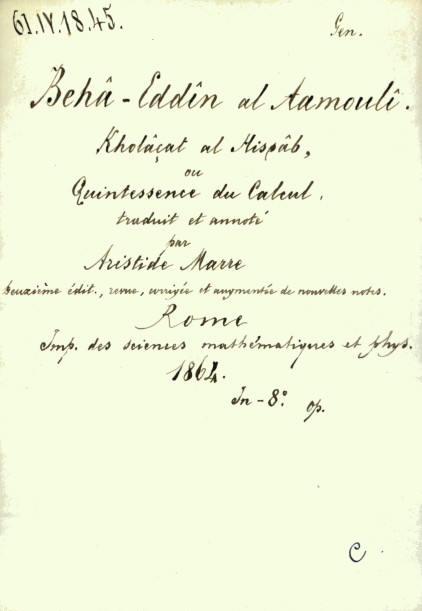 61.IV.18.45.
Gen.
Behâ-Eddîn al Aamoulî.
Kholâçat al Hisâb,
ou
Quintessence du Calcul,
traduit et annoté
par
Aristide Marre
Deuxième édit., revue, corrigée et augmentée de nouvelles notes.
Rome
Imp. des sciences mathématiques et phys.
1864.
In-8º. op.
C